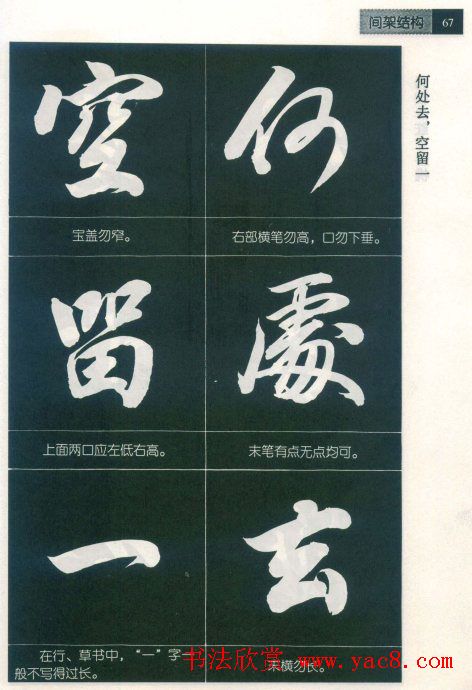 间架结构 67
何处去，空留一
何
右部横笔勿高，口勿下垂。
處
末笔有点无点均可。
去
末横勿长。
空
宝盖勿窄。
留
上面两口应左低右高。
一
在行、草书中，“一”字一
般不写得过长。
书法欣赏 www.yac8.com